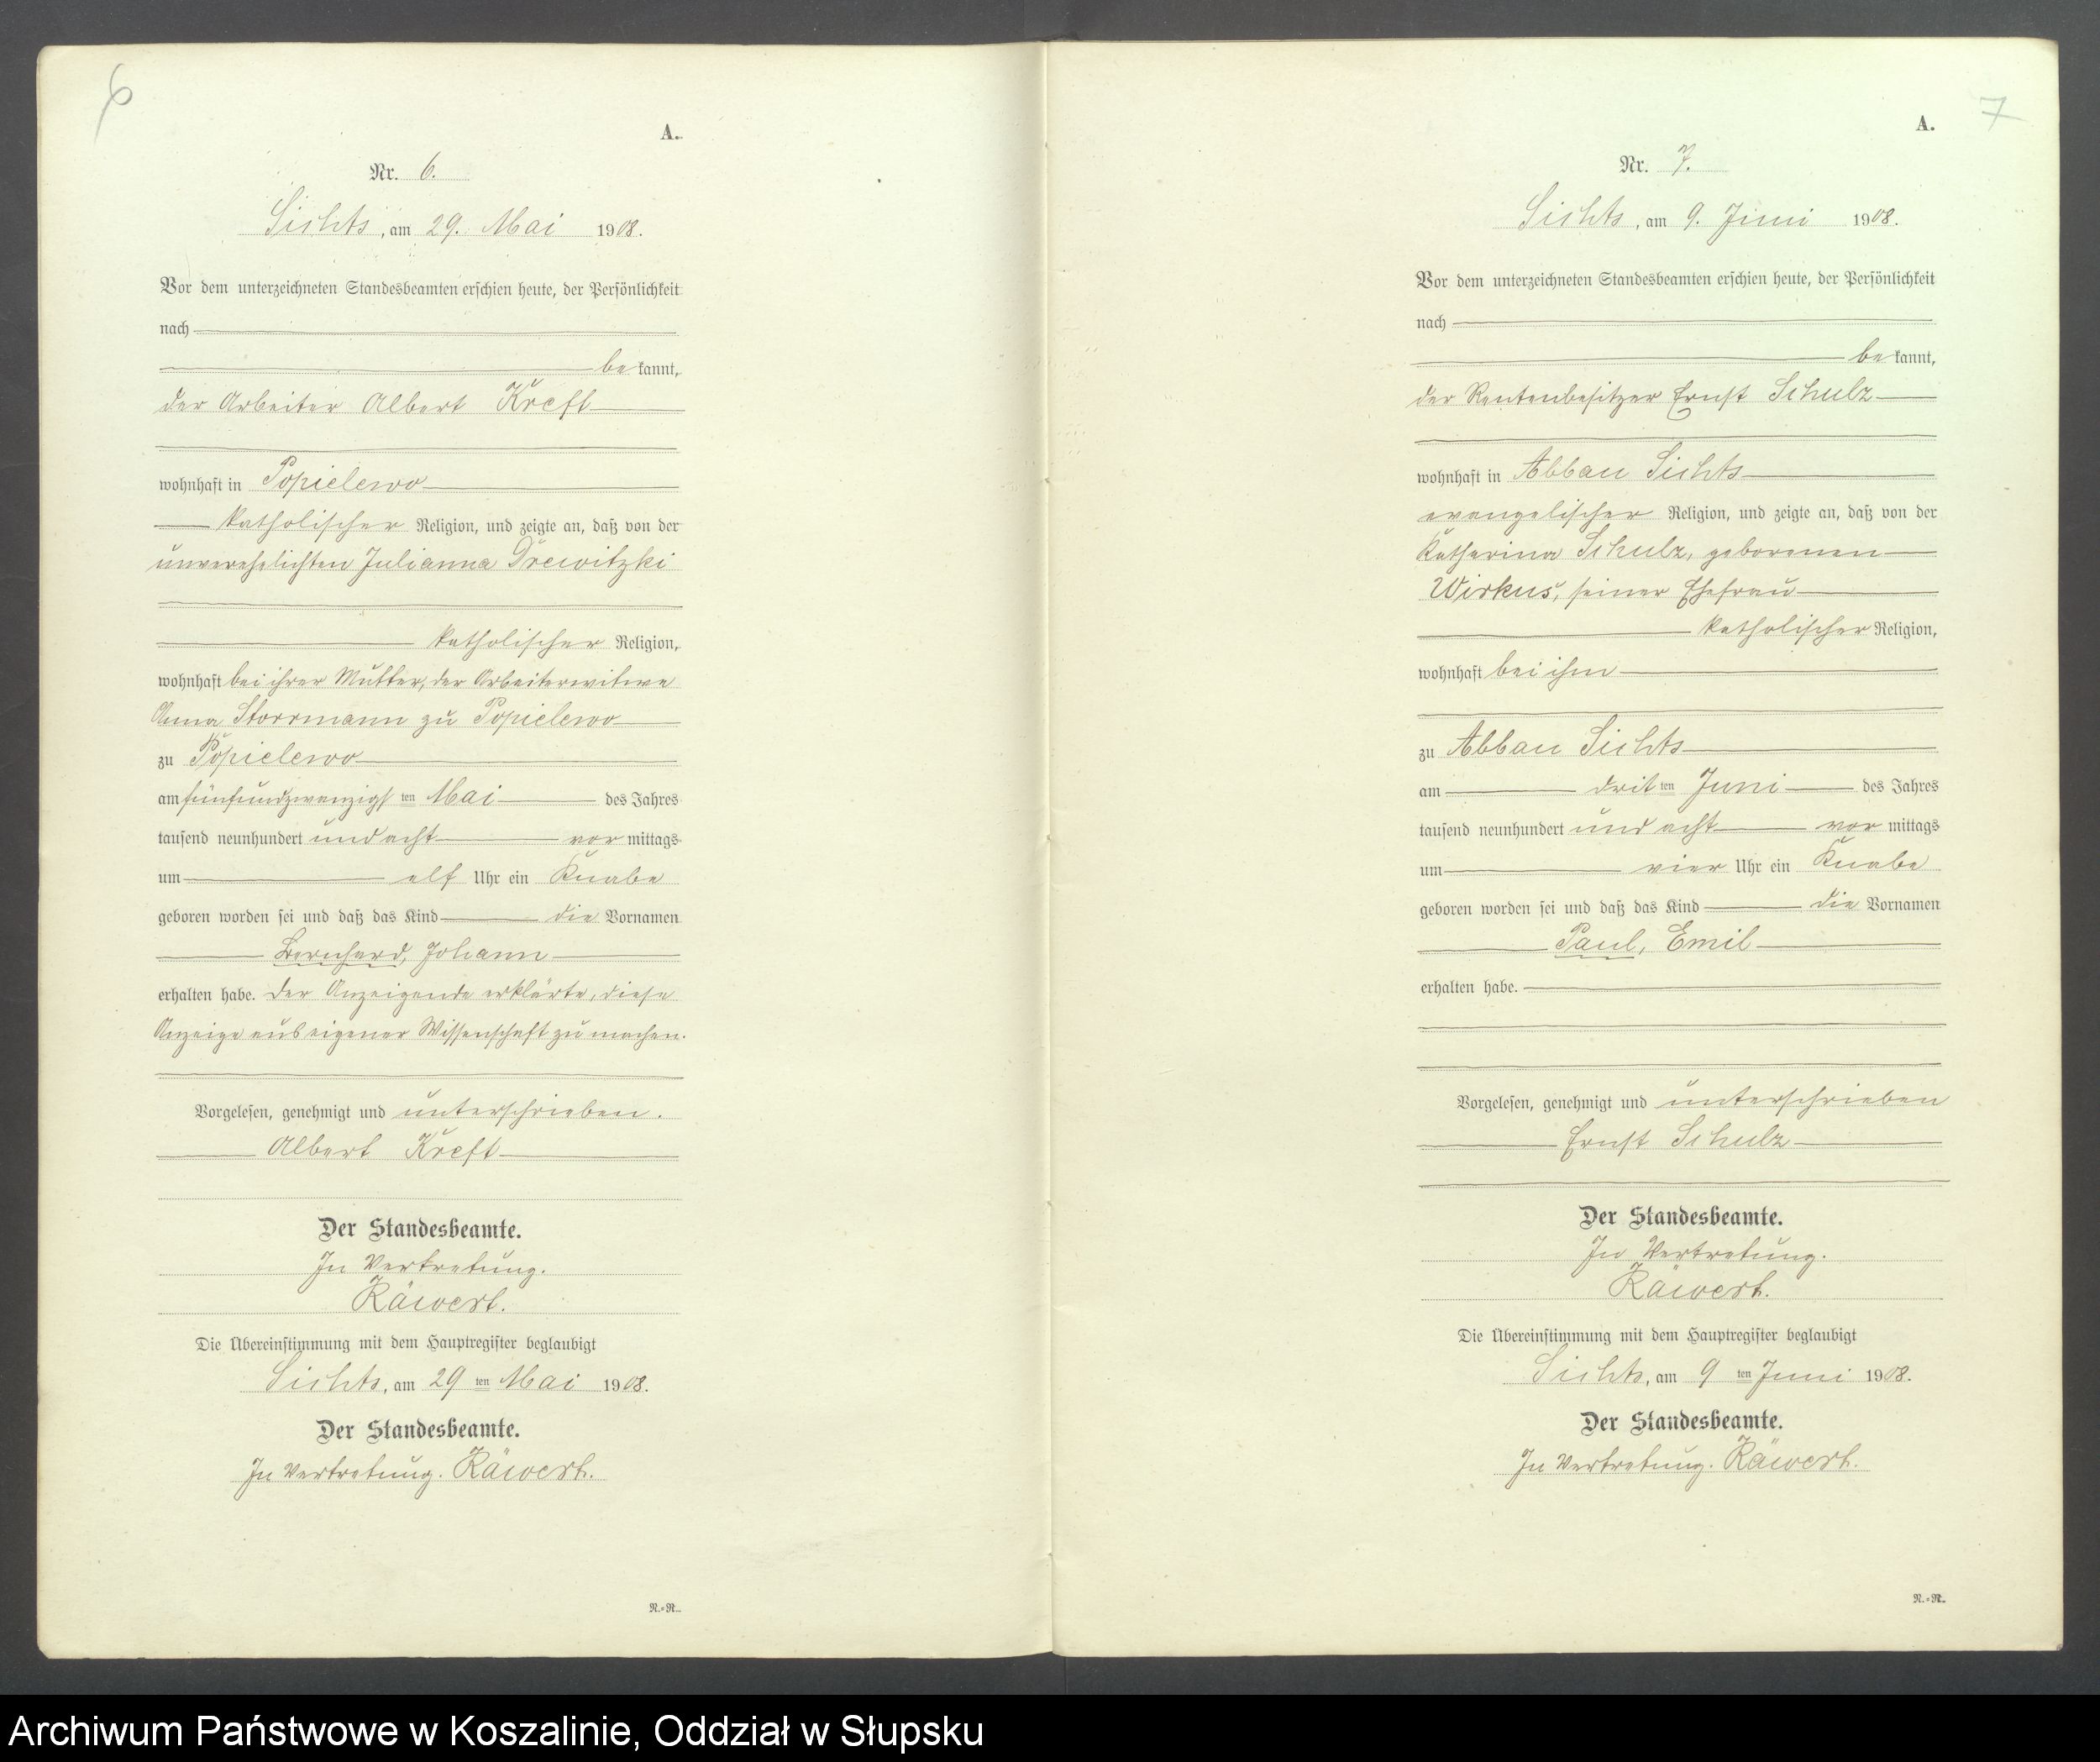 6
A.
Nr. 6.
Sichts, am 29. Mai 1908.
Vor dem unterzeichneten Standesbeamten erschien heute, der Persönlichkeit
nach
bekannt,
der Arbeiter Albert Kreft
wohnhaft in Popielewo
katholischer Religion, und zeigte an, daß von der
unverehelichten Julianna Drewitzki
katholischer Religion,
wohnhaft bei ihrer Mutter, der Arbeiterwitwe
Anna Storrmann zu Popielewo
zu Popielewo
am fünfundzwanzigsten Mai des Jahres
tausend neunhundert und acht vormittags
um elf Uhr ein Knabe
geboren worden sei und daß das Kind die Vornamen
Bernhard, Johann
erhalten habe. Der Anzeigende erklärte, diese
Anzeige aus eigener Wissenschaft zu machen.
Vorgelesen, genehmigt und unterschrieben.
Albert Kreft
Der Standesbeamte.
In Vertretung.
Räwert.
Die Übereinstimmung mit dem Hauptregister beglaubigt
Sichts, am 29 ten Mai 1908.
Der Standesbeamte.
In Vertretung. Räwert.
R.=R.
7
A.
Nr. 7.
Sichts, am 9. Juni 1908.
Vor dem unterzeichneten Standesbeamten erschien heute, der Persönlichkeit
nach
bekannt,
der Rentenbesitzer Ernst Schulz
wohnhaft in Abbau Sichts
evangelischer Religion, und zeigte an, daß von der
Katharina Schulz, geborenen
Wirkus, seiner Ehefrau
katholischer Religion,
wohnhaft bei ihm
zu Abbau Sichts
am dritten Juni des Jahres
tausend neunhundert und acht vormittags
um vier Uhr ein Knabe
geboren worden sei und daß das Kind die Vornamen
Paul, Emil
erhalten habe.
Vorgelesen, genehmigt und unterschrieben
Ernst Schulz
Der Standesbeamte.
In Vertretung.
Räwert.
Die Übereinstimmung mit dem Hauptregister beglaubigt
Sichts, am 9 ten Juni 1908.
Der Standesbeamte.
In Vertretung. Räwert.
R.=R.
Archiwum Państwowe w Koszalinie, Oddział w Słupsku